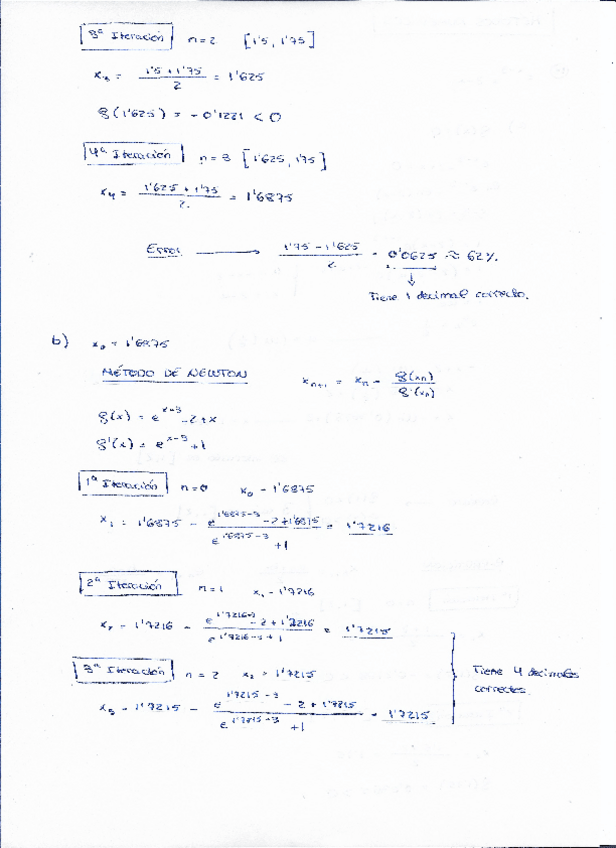 3ª Iteración n=2 [1'5, 1'75]
x₃ = (1'5 + 1'75)/2 = 1'625
g(1'625) = -0'1221 < 0
4ª Iteración n=3 [1'625, 1'75]
x₄ = (1'625 + 1'75)/2 = 1'6875
Error → (1'75 - 1'625)/2 = 0'0625 ≈ 62%.
↓
Tiene 1 decimal correcto.
b) x₀ = 1'6875
MÉTODO DE NEWTON xₙ₊₁ = xₙ - g(xₙ)/g'(xₙ)
g(x) = e^(x-3) - 2 + x
g'(x) = e^(x-3) + 1
1ª Iteración n=0 x₀ = 1'6875
x₁ = 1'6875 - (e^(1'6875-3) - 2 + 1'6875)/(e^(1'6875-3) + 1) = 1'7216
2ª Iteración n=1 x₁ = 1'7216
x₂ = 1'7216 - (e^(1'7216-3) - 2 + 1'7216)/(e^(1'7216-3) + 1) = 1'7215
3ª Iteración n=2 x₂ = 1'7215
x₃ = 1'7215 - (e^(1'7215-3) - 2 + 1'7215)/(e^(1'7215-3) + 1) = 1'7215
Tiene 4 decimales
correctos.